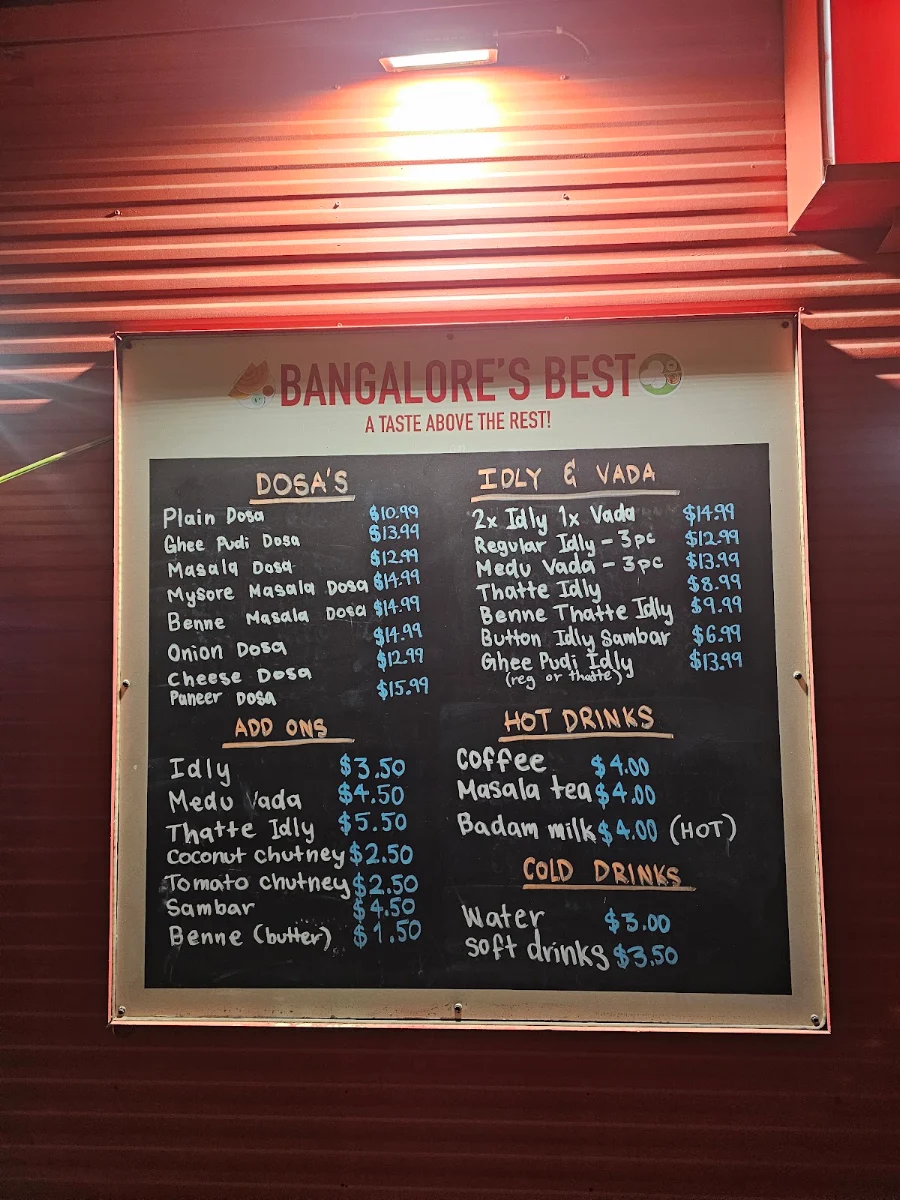 BANGALORE'S BEST
A TASTE ABOVE THE REST!
DOSA'S
Plain Dosa $10.99
Ghee Pudi Dosa $13.99
Masala Dosa $12.99
Mysore Masala Dosa $14.99
Benne Masala Dosa $14.99
Onion Dosa $14.99
Cheese Dosa $12.99
Paneer Dosa $15.99
ADD ONS
Idly $3.50
Medu Vada $4.50
Thatte Idly $5.50
Coconut chutney $2.50
Tomato chutney $2.50
Sambar $4.50
Benne (butter) $1.50
IDLY & VADA
2x Idly 1x Vada $14.99
Regular Idly - 3pc $12.99
Medu Vada - 3pc $13.99
Thatte Idly $8.99
Benne Thatte Idly $9.99
Button Idly Sambar $6.99
Ghee Pudi Idly $13.99
(reg or thatte)
HOT DRINKS
Coffee $4.00
Masala tea $4.00
Badam milk $4.00 (HOT)
COLD DRINKS
Water $3.00
Soft drinks $3.50